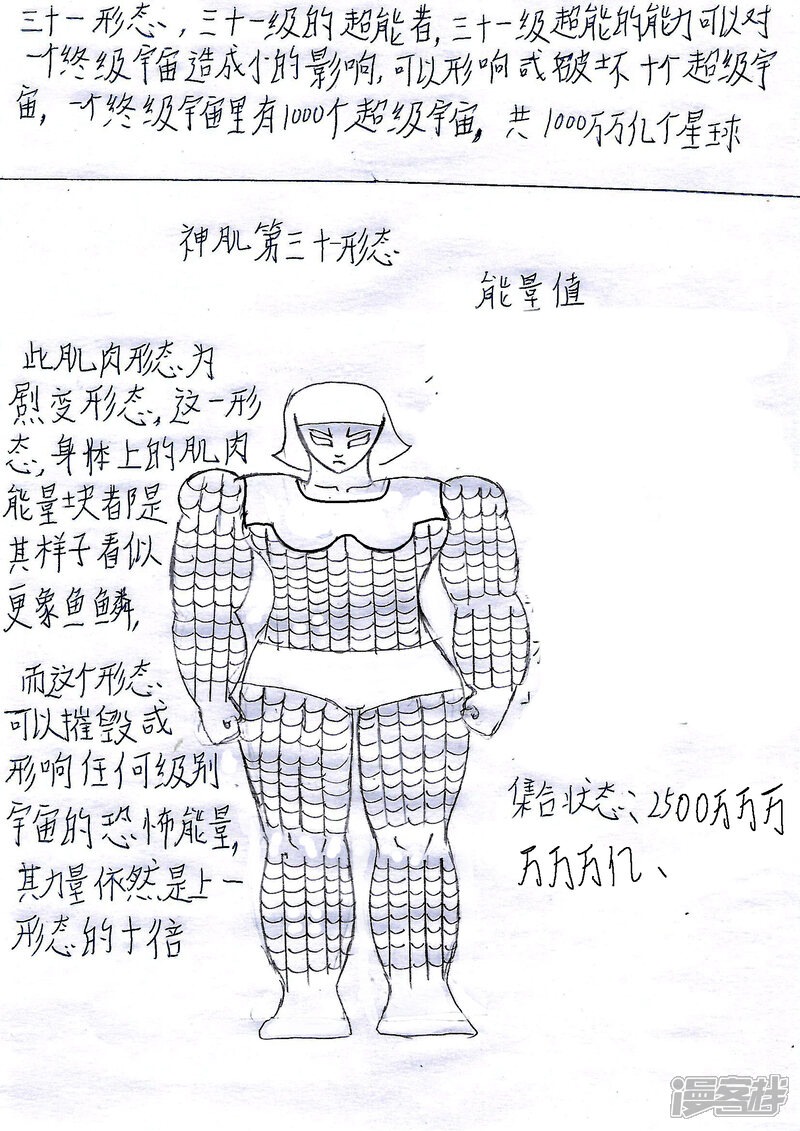 三十一形态，三十一级的超能者，三十一级超能的能力可以对
一个终级宇宙造成小的影响，可以形响或破坏十个超级宇
宙，一个终级宇宙里有1000个超级宇宙，共1000万万亿个星球
神肌第三十一形态
能量值
此肌肉形态为
烈变形态，这一形
态，身体上的肌肉
能量块都是
其样子看似
更象鱼鳞，
而这个形态
可以摧毁或
形响任何级别
宇宙的恐怖能量，
其力量依然是上一
形态的十倍
集合状态、2500万万万
万万万亿、
漫客栈